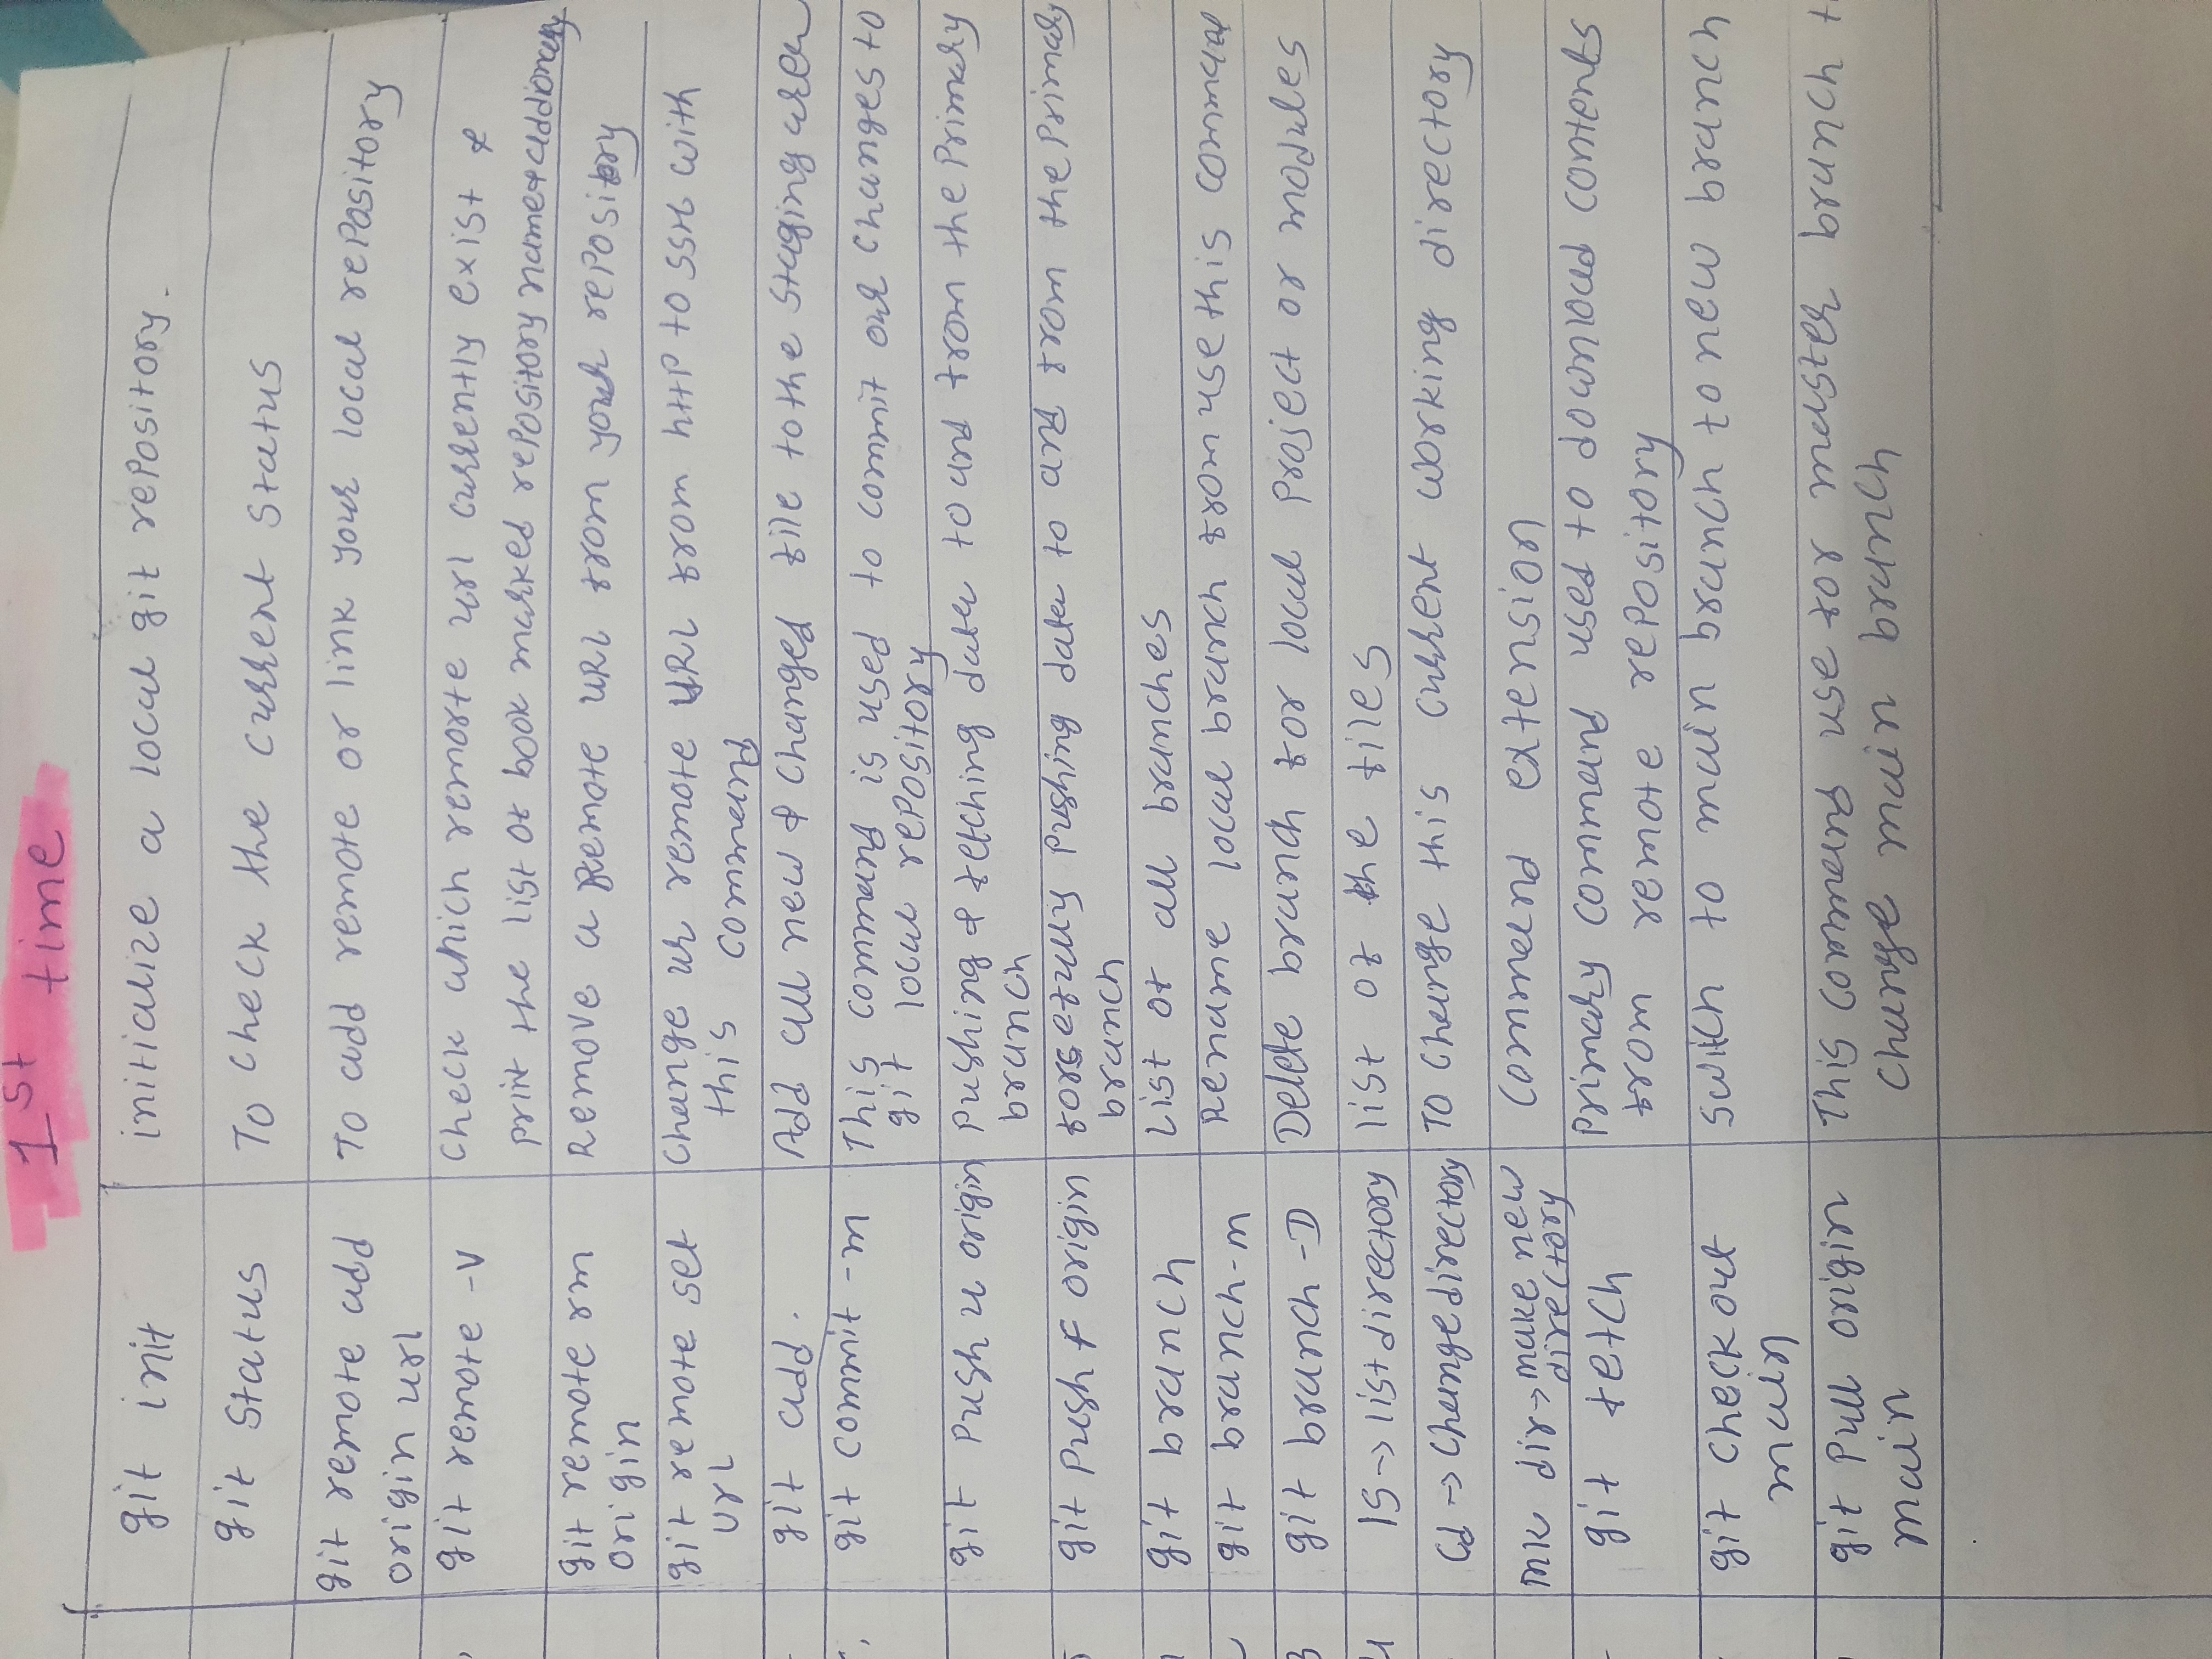 1st time
git init initialize a local git repository.
git status To check the current status
git remote add To add remote or link your local repository
origin url
git remote -v check which remorte url currently exist &
print the list of book marked repository name &
git remote rm Remove a Remote URL from your repository
origin
git remote set change ur remote URL from http to SSH with
url this command
git add . Add all new & changed file to the staging area
git commit -m This command is used to commit our changes to
git local repository
git push u origin pushing & fetching data to and from the primary
branch
git push f origin forsefully pushing data to and from the primary
branch
git branch List of all branches
git branch-m Rename local branch from use this command
git branch -D Delete branch for local project or modules
ls -> list directory list of the files
cd -> change directory To change this current working directory
mk dir -> make new command extension
directory
git fetch primary command used to download contents
from remote repository
git checkout switch to main branch to new branch
main
git pull origin This command use for master branch t
main change main branch